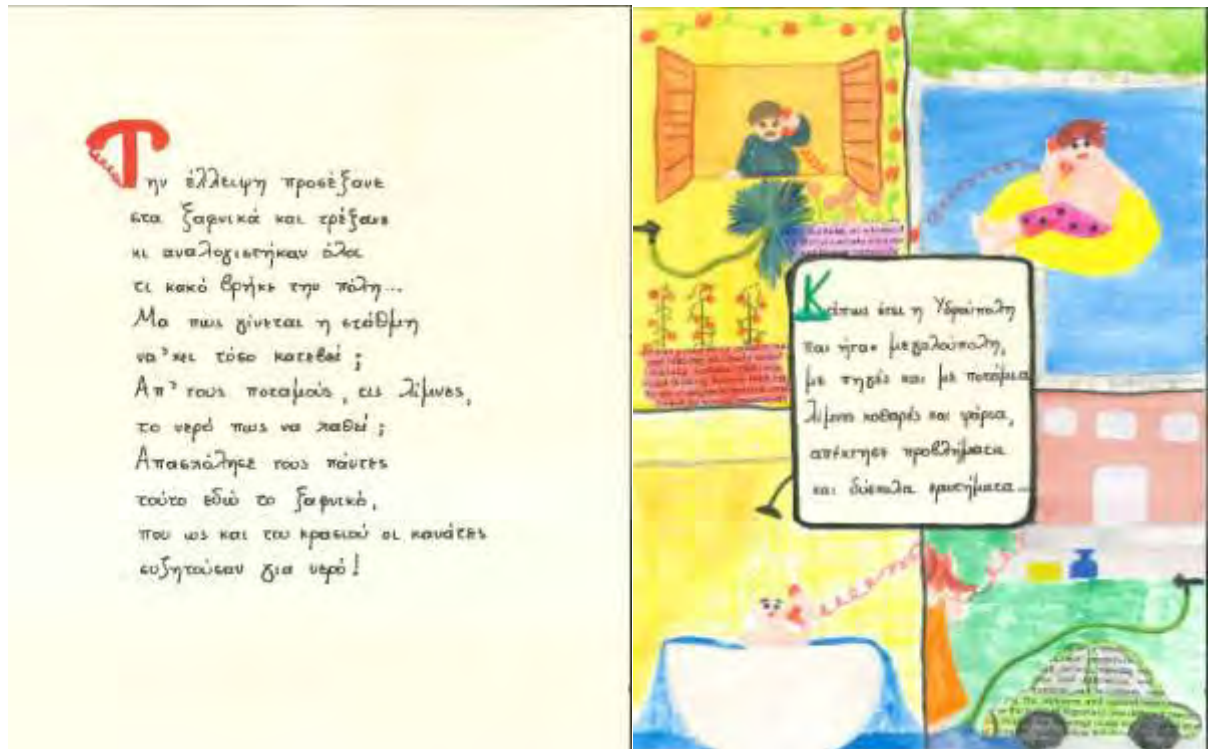 Την έλλειψη προσέξανε
στα ξαφνικά και τρέξανε
κι αναλογιστήκαν όλοι
τι κακό βρήκε την πόλη...
Μα πως γίνεται η στάθμη
να 'χει τόσο κατεβεί;
Απ' τους ποταμούς, τις λίμνες,
το νερό πως να χαθεί;
Απασχόλησε τους πάντες
τούτο εδώ το ξαφνικό,
που ως και του κρασιού οι κανάτες
συζητούσαν για νερό!
Κάπως έτσι η Υδρούπολη
που ήταν μεγαλούπολη,
με πηγές και με ποτάμια
λίμνες καθαρές και ψάρια,
απέκτησε προβλήματα
και δύσκολα ερωτήματα...